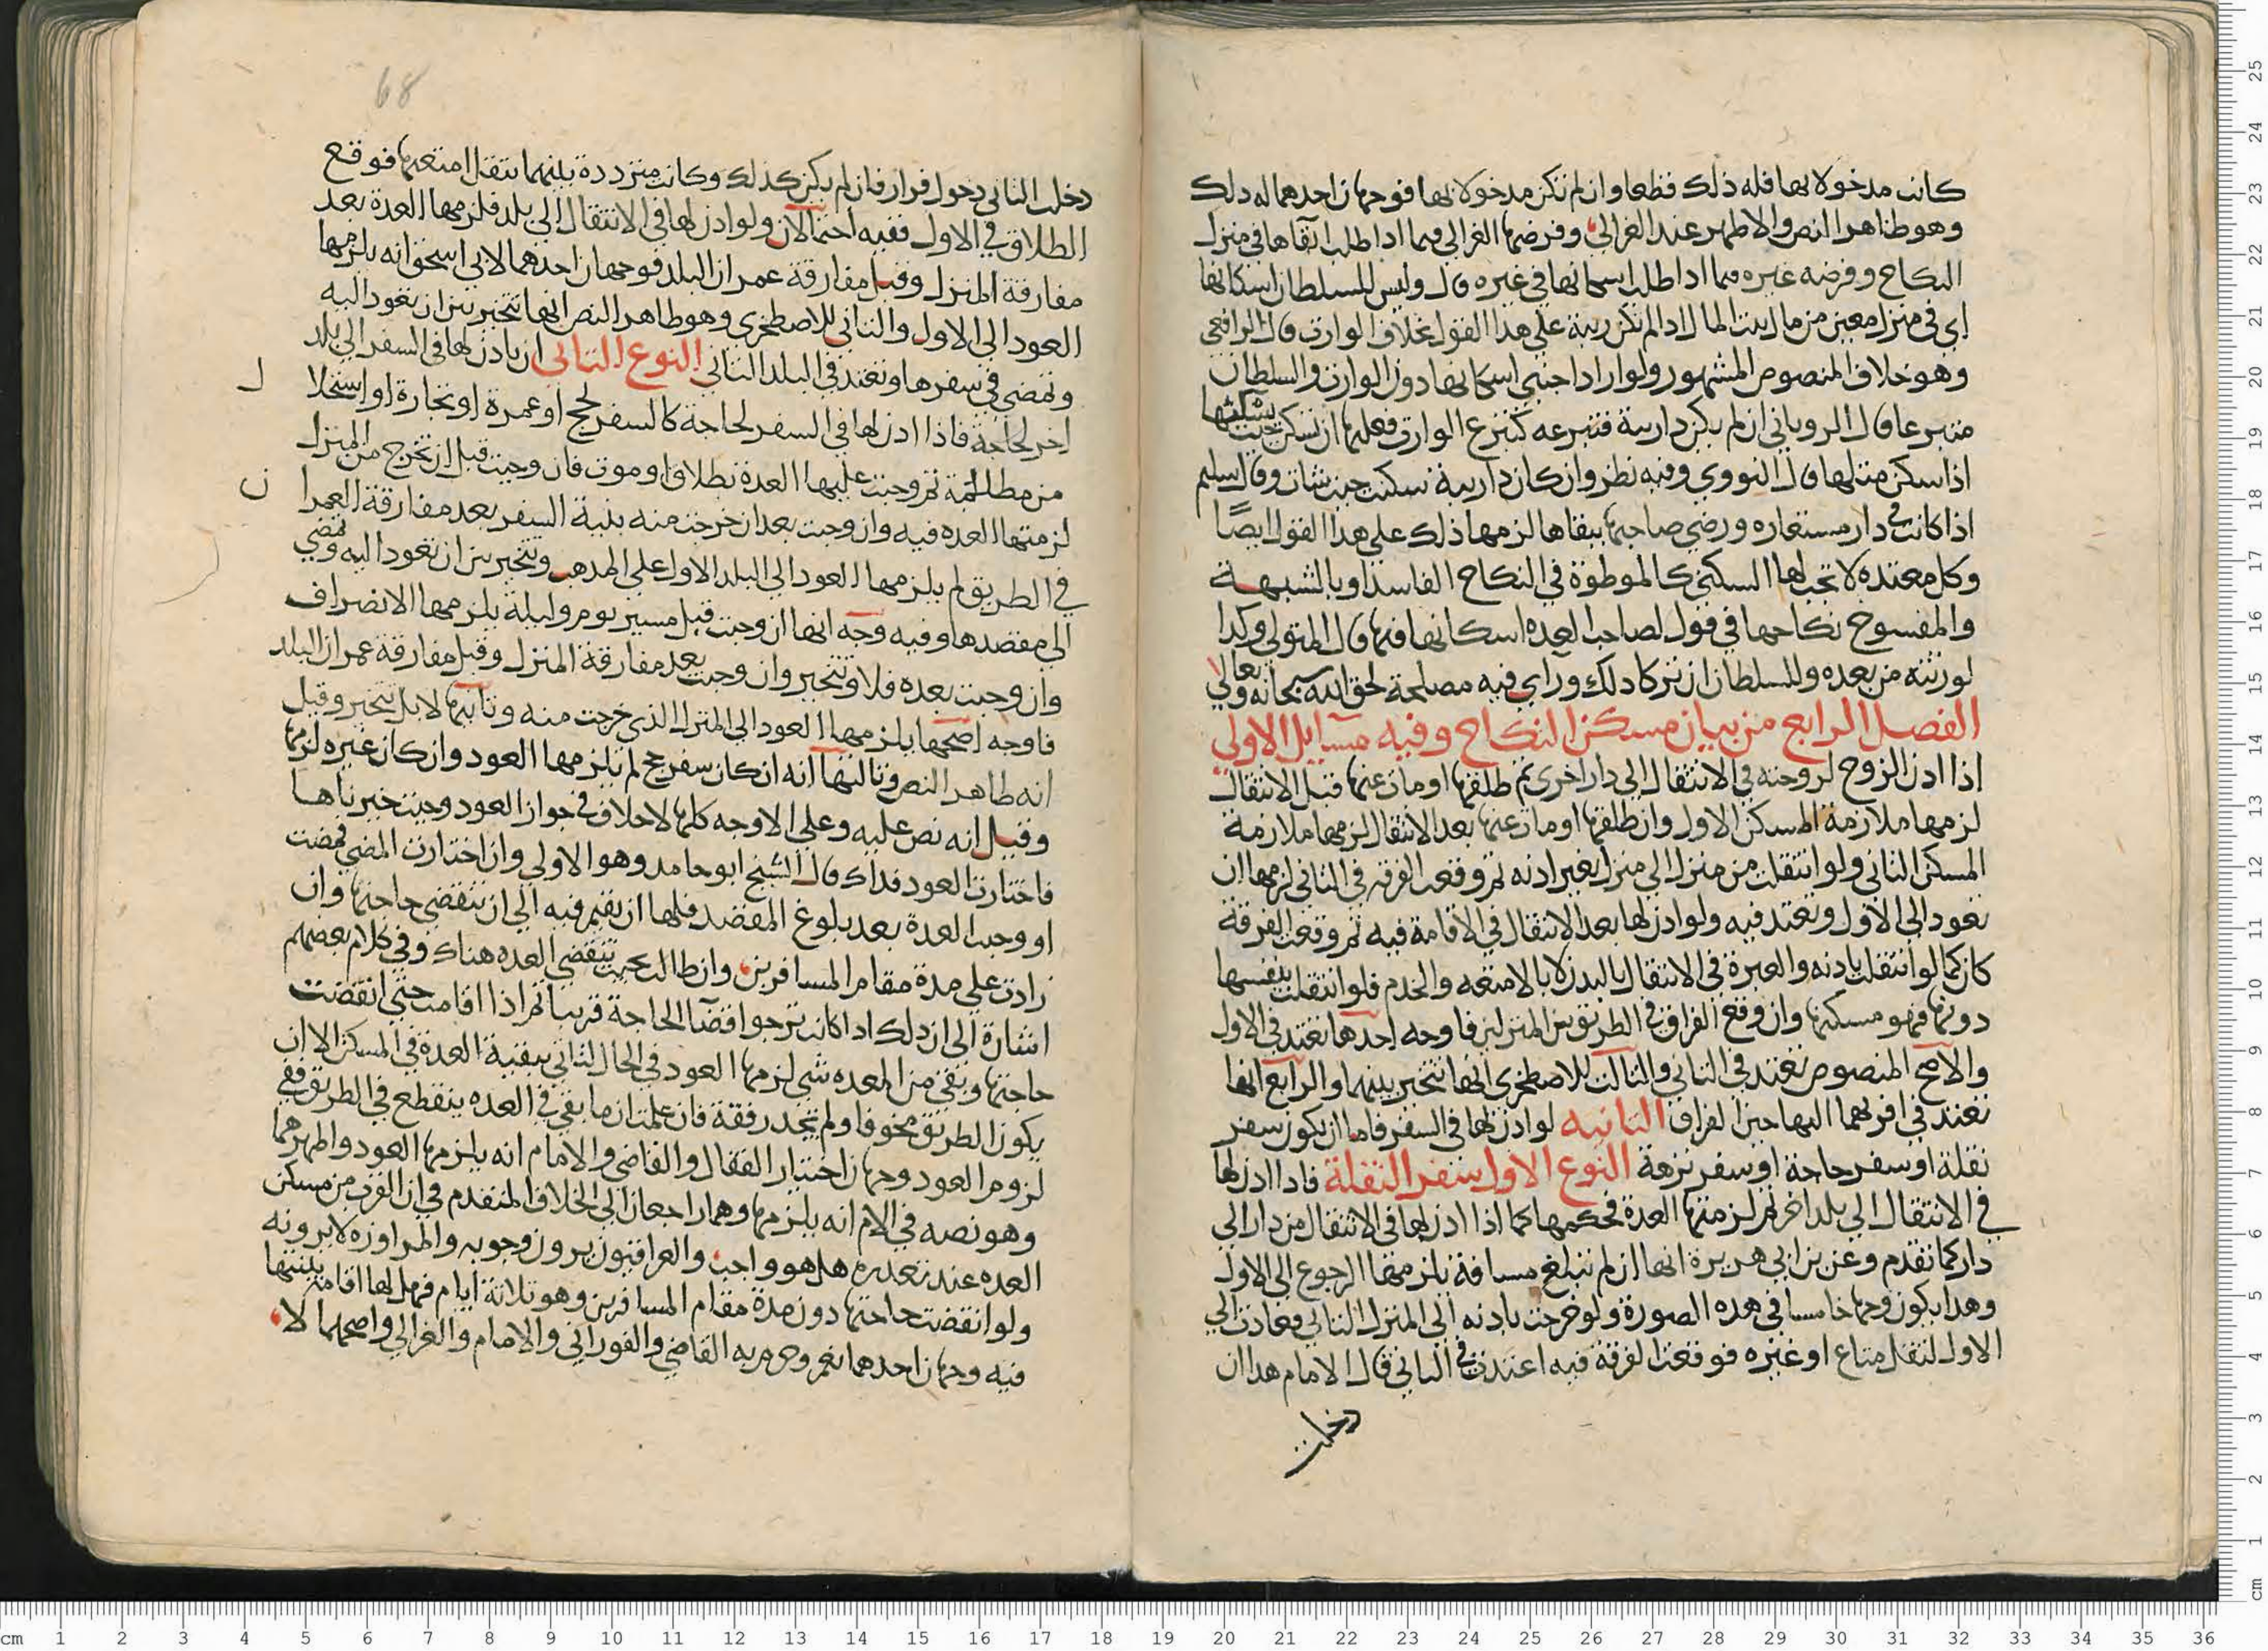 كانت مدخولا بها فله ذلك قطعا وان لم تكن مدخولا بها فوجهان احدهما له ذلك
وهو ظاهر النص والاظهر عند الغزالي وفرضها الغزالي فيما اذا طلب ابقاها في منزل
النكاح وفرضه غيره فيما اذا طلب اسكانها في غيره قال وليس للسلطان اسكانها
اي في منزل معين من مال بيت المال اذا لم تكن ريبة على هذا القول بخلاف الوارث قال الرافعي
وهو خلاف المنصوص المشهور ولو اراد اجنبي اسكانها دون الوارث والسلطان
متبرعا قال الروياني ان لم يكن دار يبة فتبرعه كتبرع الوارث فعليها ان تسكن حيث يسكنها
اذا سكن مثلها قال النووي وفيه نظر وان كان دار يبة سكنت حيث شات وقال سليم
اذا كانت في دار مستعاره ورضي صاحبها ببقاها لزمها ذلك على هذا القول ايضًا
وكل معتده لا تجب لها السكنى كالموطوة في النكاح الفاسد او بالشبهة
والمفسوخ نكاحها في قول لصاحب العده اسكانها فيها قال المتولي وكذا
لورثته من بعده وللسلطان ان تركا ذلك وراي فيه مصلحة لحق الله سبحانه وتعالى
الفصل الرابع من بيان مسكن النكاح وفيه مسايل الاولى
اذا اذن الزوج لزوجته في الانتقال الى دار اخرى ثم طلقها او مات عنها قبل الانتقال
لزمها ملازمة المسكن الاول وان طلقها او مات عنها بعد الانتقال لزمها ملازمة
المسكن الثاني ولو انتقلت من منزل الى منزل بغير اذنه ثم وقعت الفرقه في الثاني لزمها ان
تعود الى الاول وتعتد فيه ولو اذن لها بعد الانتقال في الاقامة فيه ثم وقعت الفرقة
كان كما لو انتقلت باذنه والعبرة في الانتقال بالبدن لا بالامتعه والخدم فلو انتقلت بنفسها
دونها فهو مسكنها وان وقع الفراق في الطريق بين المنزلين فاوجه احدها تعتد في الاول
والاصح المنصوص تعتد في الثاني والثالث للاصطخري انها تتخير بينهما والرابع انها
تعتد في اقربهما اليها حين الفراق الثانيه لو اذن لها في السفر فاما ان يكون سفر
نقلة او سفر حاجة او سفر نزهة النوع الاول سفر النقلة فاذا اذن لها
في الانتقال الى بلد اخر ثم لزمتها العدة فحكمها كما اذا اذن لها في الانتقال من دار الى
دار كما تقدم وعن بن ابي هريرة انها ان لم تبلغ مسافة يلزمها الرجوع الى الاول
وهذا يكون وجها خامسا في هذه الصورة ولو خرجت باذنه الى المنزل الثاني وعادت الى
الاول لنقل متاع او غيره فوقعت الفرقة فيه اعتدت في الثاني قال الامام هذا ان
دخلت
68
دخلت الثاني دخول قرار فان لم يكن كذلك وكانت مترددة بينهما بنقل امتعتها فوقع
الطلاق في الاول ففيه احتمالان ولو اذن لها في الانتقال الى بلد فلزمها العدة بعد
مفارقة المنزل وقبل مفارقة عمران البلد فوجهان احدهما لابي اسحق انه يلزمها
العود الى الاول والثاني للاصطخري وهو ظاهر النص انها تتخير بين ان تعود اليه
وتمضي في سفرها وتعتد في البلد الثاني النوع الثاني ان ياذن لها في السفر الى بلد
اخر لحاجة فاذا اذن لها في السفر لحاجة كالسفر لحج او عمرة او تجارة او استحلا ل
من مظلمة ثم وجبت عليها العدة بطلاق او موت فان وجبت قبل ان تخرج من المنزل
لزمتها العده فيه وان وجبت بعد ان خرجت منه بنية السفر بعد مفارقة العمرا ن
في الطريق لم يلزمها العود الى البلد الاول على المذهب وتتخير بين ان تعود اليه وتمضي
الى مقصدها وفيه وجه انها ان وجبت قبل مسير يوم وليلة يلزمها الانصراف
وان وجبت بعده فلا وتتخير وان وجبت بعد مفارقة المنزل وقبل مفارقة عمران البلد
فاوجه اصحها يلزمها العود الى المنزل الذي خرجت منه وثانيها لا بل تتخير وقيل
انه ظاهر النص وثالثها انه ان كان سفر حج لم يلزمها العود وان كان غيره لزمها
وقيل انه نص عليه وعلى الاوجه كلها لا خلاف في جواز العود وحيث خيرناها
فاختارت العود فذاك قال الشيخ ابو حامد وهو الاولى وان اختارت المضي فمضت
او وجبت العدة بعد بلوغ المقصد فلها ان تقيم فيه الى ان تنقضي حاجتها وان
زادت على مدة مقام المسافرين وان طالت بحيث تنقضي العده هناك وفي كلام بعضهم
اشارة الى ان ذلك اذا كانت ترجوا قضآ الحاجة قريبا ثم اذا اقامت حتى انقضت
حاجتها وبقي من العده شي لزمها العود في الحال الثاني ببقية العدة في المسكن الا ان
يكون الطريق مخوفا ولم تجد رفقة فان علمت ان ما بقي في العده ينقطع في الطريق ففي
لزوم العود وجهان اختيار القفال والقاضي والامام انه يلزمها العود واظهرهما
وهو نصه في الام انه يلزمها وهما راجعان الى الخلاف المتقدم في ان القرب من مسكن
العده عند تعذره هل هو واجب والعراقيون يرون وجوبه والمراوزه لا يرونه
ولو انقضت حاجتها دون مدة مقام المسافرين وهو ثلاثة ايام فهل لها اقامة بقيتها
فيه وجهان احدهما نعم وجزم به القاضي والفوراني والامام والغزالي واصحهما لا